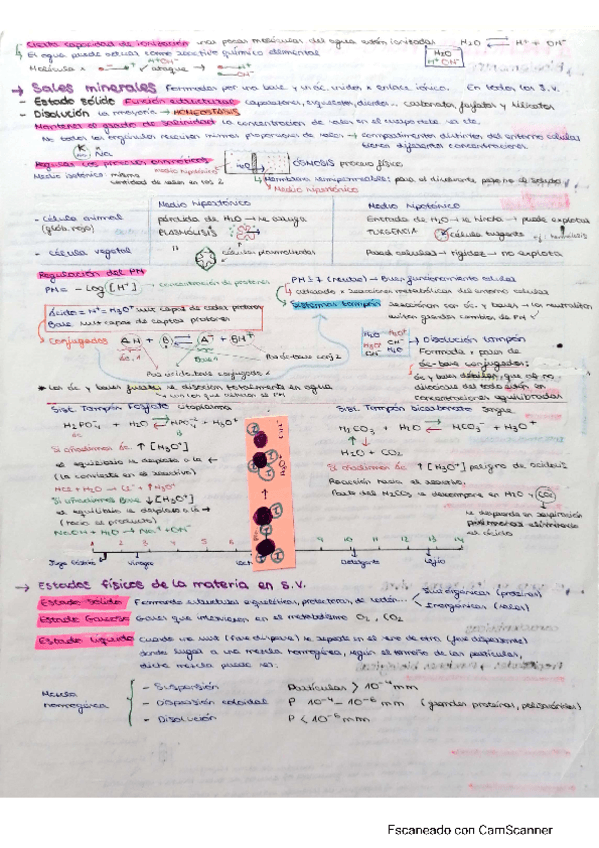 Cierta capacidad de ionización unas pocas moléculas del agua están ionizadas H2O ⇄ H+ + OH-
El agua puede actuar como reactivo químico elemental
H2O
H+ OH-
Molécula + ataque →
H+ OH-
→ Sales minerales Formadas por una base y un ác. unidos x enlace iónico. En todos los S.V.
- Estado Sólido Función estructural caparazones, esqueletos, dientes... carbonatos, fosfatos y silicatos
- Disolución La mayoría → HOMEOSTASIS
Mantener el grado de salinidad La concentración de sales en el cuerpo debe ser cte.
No todos los orgánulos requieren mismas proporciones de sales → compartimentos distintos del entorno celular
tienen diferentes concentraciones.
K Na
Regulan los procesos osmóticos
Medio isotónico: misma
cantidad de sales en los 2
medio hipotónico
H2O
ÓSMOSIS proceso físico
Membrana semipermeable: para el disolvente pero no el soluto
Medio hipertónico
Medio hipertónico
Medio hipotónico
- Célula animal
(glób. rojo)
pérdida de H2O → se arruga
PLASMÓLISIS
Entrada de H2O → se hincha → puede explotar
TURGENCIA célula turgente ej: hemólisis
- Célula vegetal
"
células plasmolizadas
Pared celular → rigidez → no explota
Regulación del PH
PH = - log [H+] → concentración de protones
PH ≈ 7 (neutro) → Buen funcionamiento celular
utilizado x reacciones metabólicas del entorno celular
Sistemas tampón reaccionan con ác. y bases → los neutralizan
evitan grandes cambios de PH
Ácido = H+ = H3O+ sust capaz de ceder protones
Base sust capaz de captar protones
→ Conjugados AH + B ⇄ A- + BH+
Ác. 1
Base 1
Par ácido base conjugado 1
Par ác-base conj 2
H2O H3O+
H3O+ OH- H2O
OH-
→ Disolución tampón
Formada x pares de
ác-base conjugados:
ác y bases débiles, que al no
disociarse del todo están en
concentraciones equilibradas
* Los ác y bases fuertes se disocian totalmente en agua
→ son los que alteran el PH
Sist. Tampón Fosfato citoplasma
H2PO4- + H2O ⇄ HPO4- + H3O+
Si añadimos ác. ↑ [H3O+]
el equilibrio se desplaza a la ←
(lo convierte en el reactivo)
HCl + H2O → Cl- + ↑H3O+
Si añadimos Base ↓ [H3O+]
el equilibrio se desplaza a la →
(hacia el producto)
NaOH + H2O → Na+ + OH-
Sist. Tampón bicarbonato Sangre
H2CO3 + H2O ⇄ HCO3- + H3O+
H2O + CO2
Si añadimos ác. ↑ [H3O+] peligro de acidosis
Reacción hacia el reactivo.
Parte del H2CO3 se descompone en H2O y CO2
se desprende en respiración
1 2 3 4 5 6 9 10 11 12 13 14
Vinagre
Detergente
Lejía
→ Estados físicos de la materia en S.V.
Estado Sólido Formando estructuras esqueléticas, protectoras, de sostén... Sust orgánicas (proteínas)
Inorgánicas (sales)
Estado Gaseoso Gases que intervienen en el metabolismo O2, CO2
Estado Líquido Cuando una sust (fase dispersa) se dispersa en el seno de otra (fase dispersante)
dando lugar a una mezcla homogénea, según el tamaño de las partículas,
dicha mezcla puede ser:
Mezcla
homogénea
- Suspensión Partículas > 10-4 mm
- Dispersión coloidal P 10-4 - 10-6 mm (grandes proteínas, polisacáridos)
- Disolución P < 10-6 mm
Escaneado con CamScanner